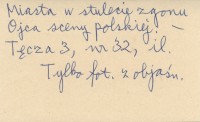 Miasta w stulecie zgonu
Ojca sceny polskiej. –
Tęcza 3, nr 32, il.
Tylko fot. z objaśn.